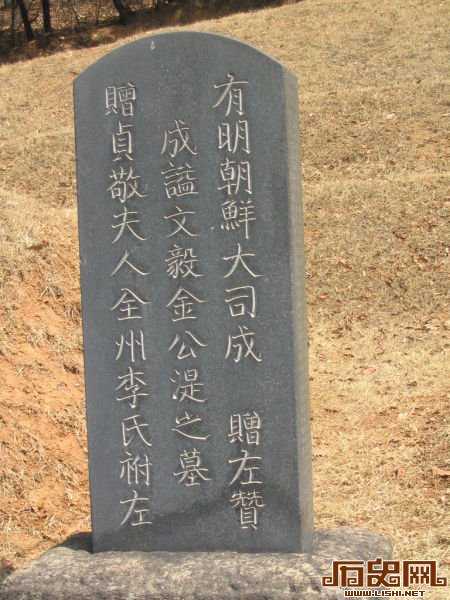 有明朝鮮大司成 贈左贊
成謚文毅金公湜之墓
贈貞敬夫人全州李氏祔左
历史网
WWW.LISHI.NET